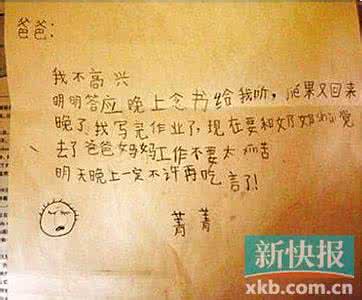 爸爸:
我不高兴
明明答应晚上念书给我听，结果又回来
晚了,我写完作业了,现在要和奶奶睡觉
去了爸爸妈妈工作不要太辛苦
明天晚上一定不许再吃言了!
菁菁
新快报
xkb.com.cn